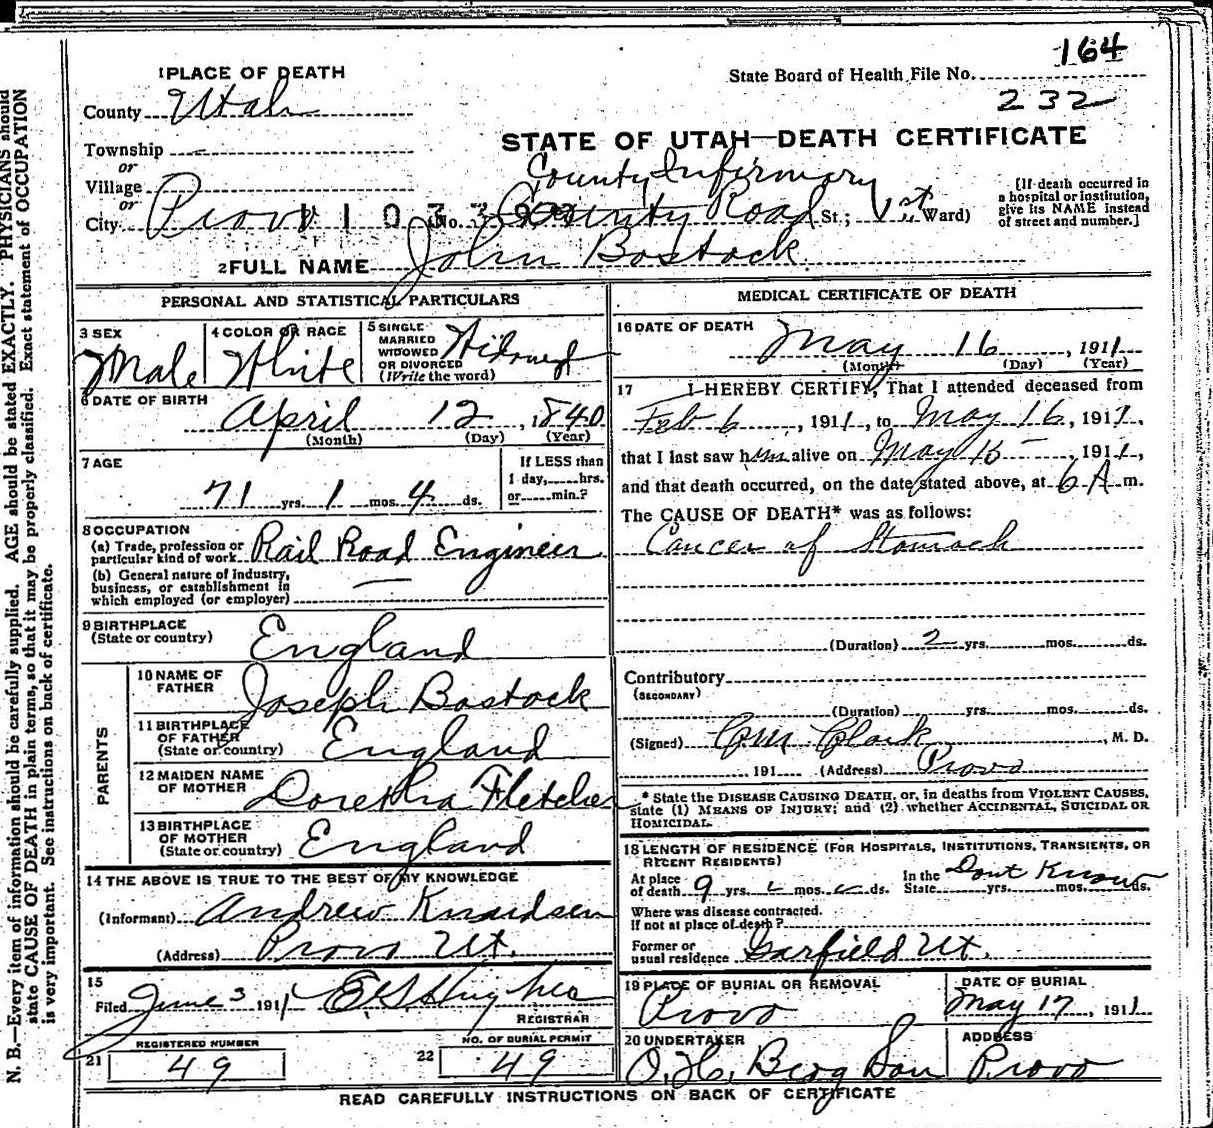 164
1 PLACE OF DEATH
State Board of Health File No.
County Utah
232
STATE OF UTAH—DEATH CERTIFICATE
Township —
or
Village
County Infirmary
or
City Provo No. County Road St.; 1st Ward)
[If death occurred in a hospital or institution, give its NAME instead of street and number.]
2 FULL NAME John Bostock
PERSONAL AND STATISTICAL PARTICULARS
3 SEX Male
4 COLOR OR RACE White
5 SINGLE MARRIED WIDOWED OR DIVORCED (Write the word) Widowed
6 DATE OF BIRTH
April 12, 1840
(Month) (Day) (Year)
7 AGE
71 yrs. 1 mos. 4 ds.
If LESS than 1 day, hrs. or min.?
8 OCCUPATION
(a) Trade, profession or particular kind of work Rail Road Engineer
(b) General nature of industry, business, or establishment in which employed (or employer) —
9 BIRTHPLACE (State or country) England
PARENTS
10 NAME OF FATHER Joseph Bostock
11 BIRTHPLACE OF FATHER (State or country) England
12 MAIDEN NAME OF MOTHER Doretha Fletcher
13 BIRTHPLACE OF MOTHER (State or country) England
14 THE ABOVE IS TRUE TO THE BEST OF MY KNOWLEDGE
(Informant) Andrew Knudsen
(Address) Provo Ut.
15
Filed June 3 1911 E.S. Hughes
REGISTRAR
REGISTERED NUMBER
21 49
NO. OF BURIAL PERMIT
22 49
MEDICAL CERTIFICATE OF DEATH
16 DATE OF DEATH
May 16, 1911
(Month) (Day) (Year)
17 I HEREBY CERTIFY, That I attended deceased from
Feb 6, 1911, to May 16, 1911,
that I last saw him alive on May 15, 1911,
and that death occurred, on the date stated above, at 6 A m.
The CAUSE OF DEATH* was as follows:
Cancer of Stomach
(Duration) 2 yrs. mos. ds.
Contributory
(SECONDARY)
(Duration) yrs. mos. ds.
(Signed) Clark, M. D.
191 (Address) Provo
* State the DISEASE CAUSING DEATH, or, in deaths from VIOLENT CAUSES, state (1) MEANS OF INJURY; and (2) whether ACCIDENTAL, SUICIDAL OR HOMICIDAL.
18 LENGTH OF RESIDENCE (FOR HOSPITALS, INSTITUTIONS, TRANSIENTS, OR RECENT RESIDENTS)
At place of death 9 yrs. mos. ds. In the State Dont Know yrs. mos. ds.
Where was disease contracted. If not at place of death?
Former or usual residence Garfield Ut.
19 PLACE OF BURIAL OR REMOVAL
Provo
DATE OF BURIAL
May 17, 1911
20 UNDERTAKER
O. H. Berg Son
ADDRESS
Provo
READ CAREFULLY INSTRUCTIONS ON BACK OF CERTIFICATE
N. B.—Every item of information should be carefully supplied. AGE should be stated EXACTLY. PHYSICIANS should
state CAUSE OF DEATH in plain terms, so that it may be properly classified. Exact statement of OCCUPATION
is very important. See instructions on back of certificate.